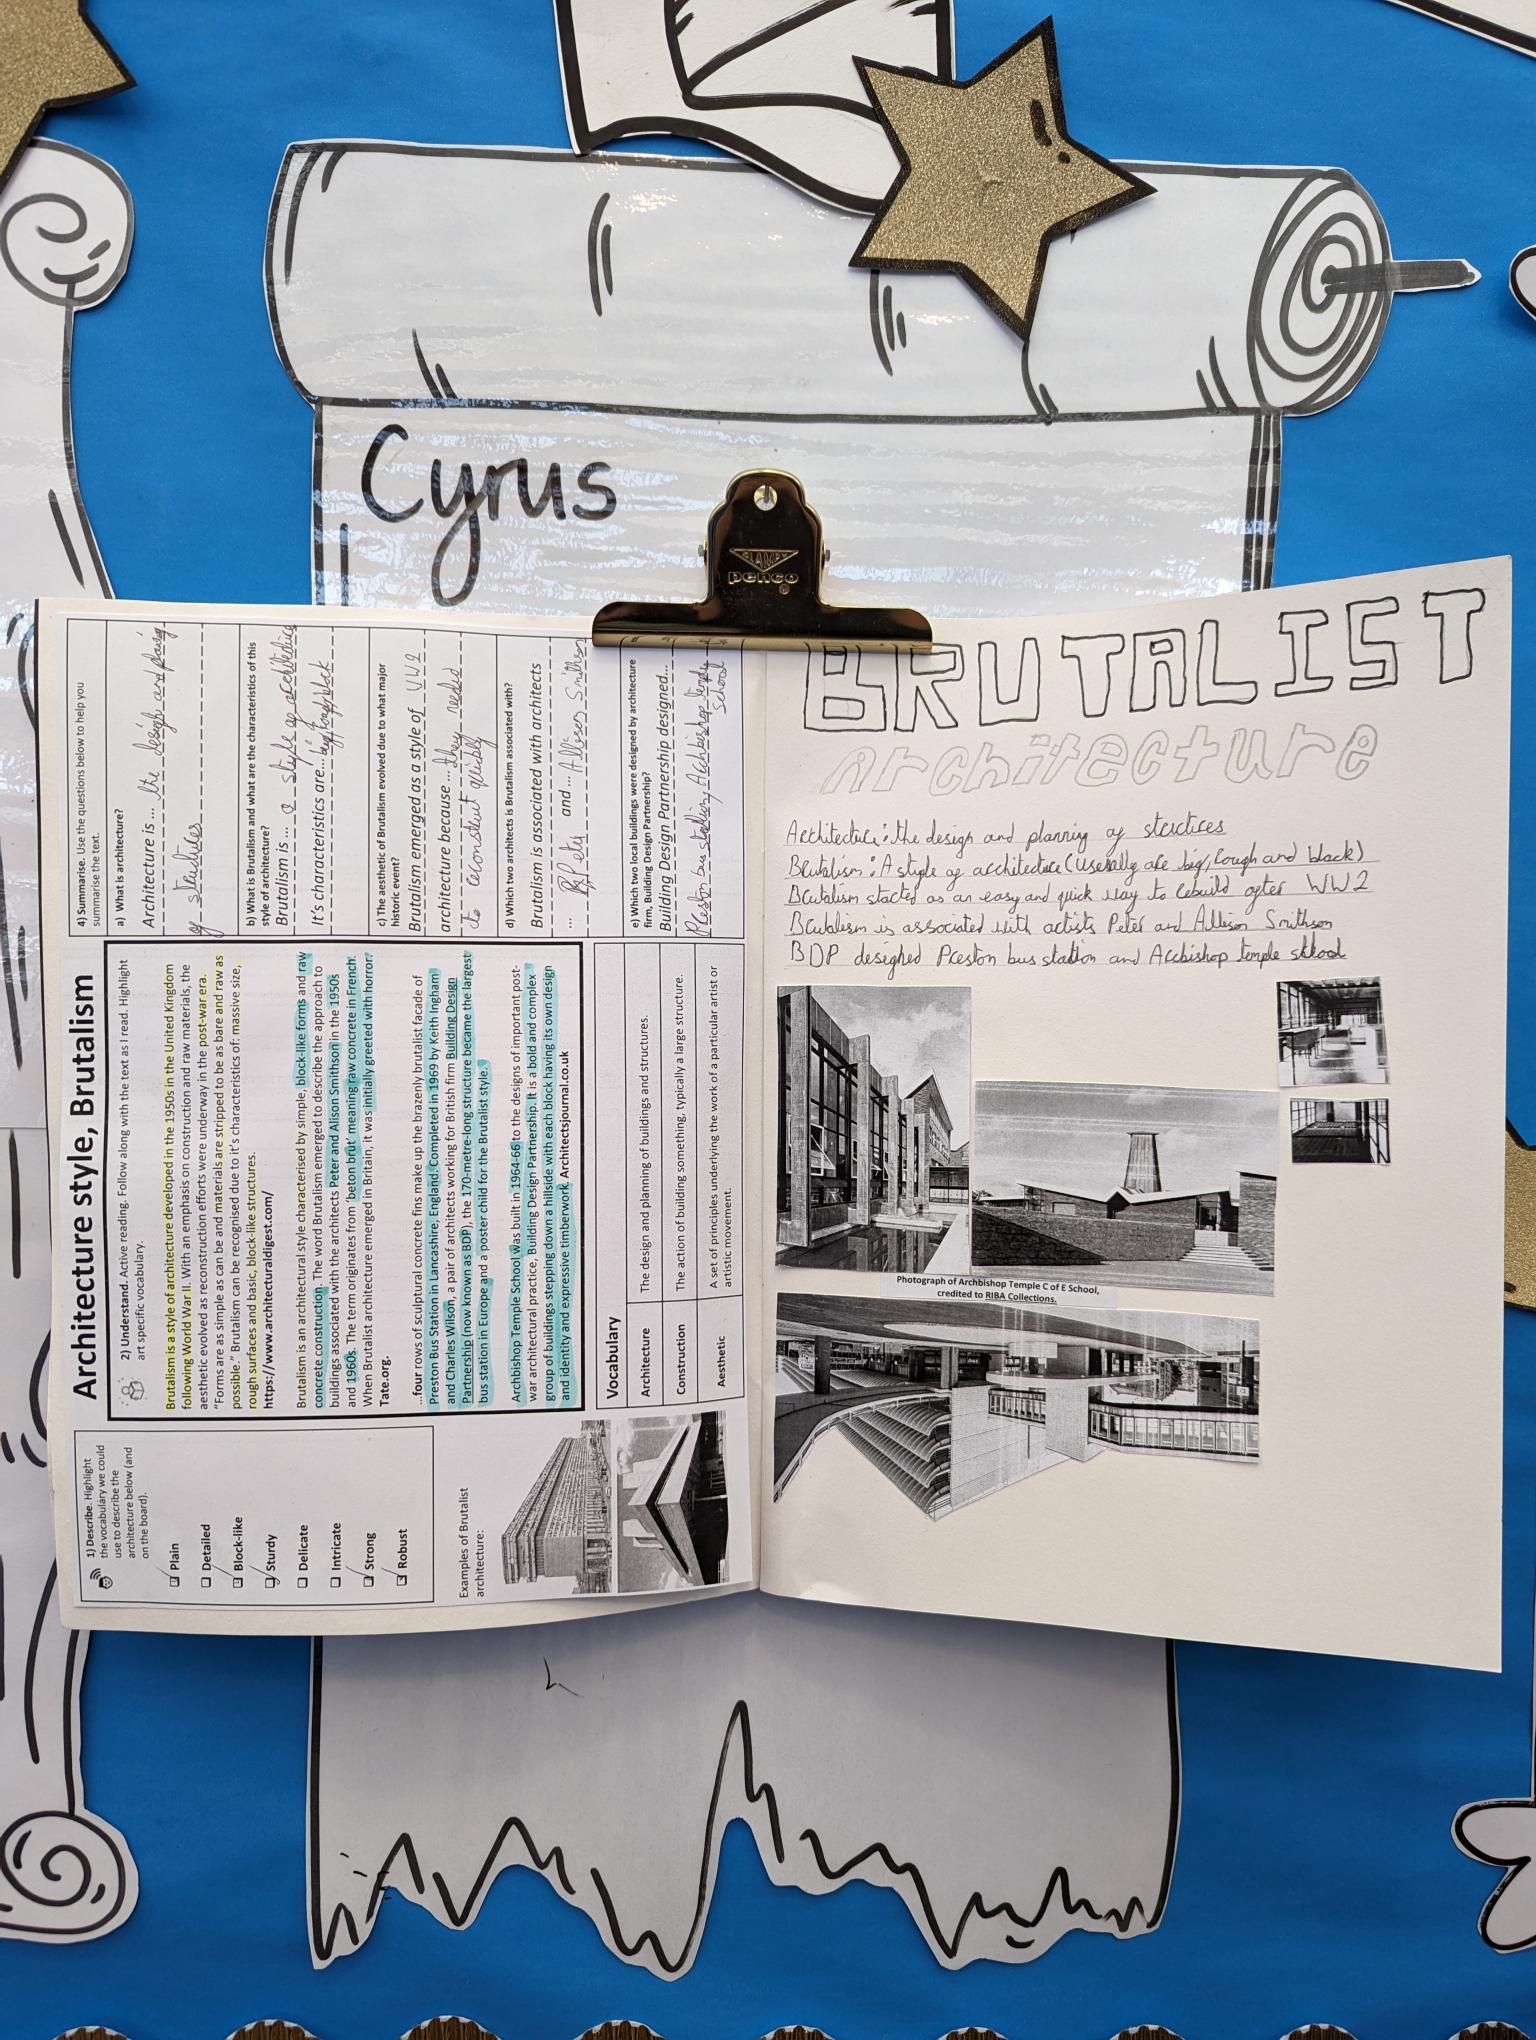 Cyrus
CLAMPY
penco
®
Architecture style, Brutalism
1) Describe. Highlight
the vocabulary we could
use to describe the
architecture below (and
on the board).
Plain
Detailed
Block-like
Sturdy
Delicate
Intricate
Strong
Robust
Examples of Brutalist
architecture:
2) Understand. Active reading. Follow along with the text as I read. Highlight
art specific vocabulary.
Brutalism is a style of architecture developed in the 1950s in the United Kingdom
following World War II. With an emphasis on construction and raw materials, the
aesthetic evolved as reconstruction efforts were underway in the post-war era.
"Forms are as simple as can be and materials are stripped to be as bare and raw as
possible." Brutalism can be recognised due to it's characteristics of: massive size,
rough surfaces and basic, block-like structures.
https://www.architecturaldigest.com/
Brutalism is an architectural style characterised by simple, block-like forms and raw
concrete construction. The word Brutalism emerged to describe the approach to
buildings associated with the architects Peter and Alison Smithson in the 1950s
and 1960s. The term originates from 'beton brut' meaning raw concrete in French.
When Brutalist architecture emerged in Britain, it was initially greeted with horror.
Tate.org.
...four rows of sculptural concrete fins make up the brazenly brutalist facade of
Preston Bus Station in Lancashire, England. Completed in 1969 by Keith Ingham
and Charles Wilson, a pair of architects working for British firm Building Design
Partnership (now known as BDP), the 170-metre-long structure became the largest
bus station in Europe and a poster child for the Brutalist style.
Archbishop Temple School was built in 1964-66 to the designs of important post-
war architectural practice, Building Design Partnership. It is a bold and complex
group of buildings stepping down a hillside with each block having its own design
and identity and expressive timberwork. Architectsjournal.co.uk
Vocabulary
Architecture The design and planning of buildings and structures.
Construction The action of building something, typically a large structure.
Aesthetic A set of principles underlying the work of a particular artist or
artistic movement.
4) Summarise. Use the questions below to help you
summarise the text.
a) What is architecture?
Architecture is... the design and planing
of structures
b) What is Brutalism and what are the characteristics of this
style of architecture?
Brutalism is... a style of architecture
It's characteristics are... big rough black
c) The aesthetic of Brutalism evolved due to what major
historic event?
Brutalism emerged as a style of WW2
architecture because... they needed
to reconstruct quickly
d) Which two architects is Brutalism associated with?
Brutalism is associated with architects
... Peter and... Allison Smithson
e) Which two local buildings were designed by architecture
firm, Building Design Partnership?
Building Design Partnership designed...
Preston bus station, Archbishop temple
School
BRUTALIST
Architecture
Architecture: the design and planning of structures
Brutalism: A style of architecture (Usually are big, rough and black)
Brutalism started as an easy and quick way to rebuild after WW2
Brutalism is associated with artists Peter and Allison Smithson
BDP designed Preston bus station and Archbishop temple school
Photograph of Archbishop Temple C of E School,
credited to RIBA Collections.